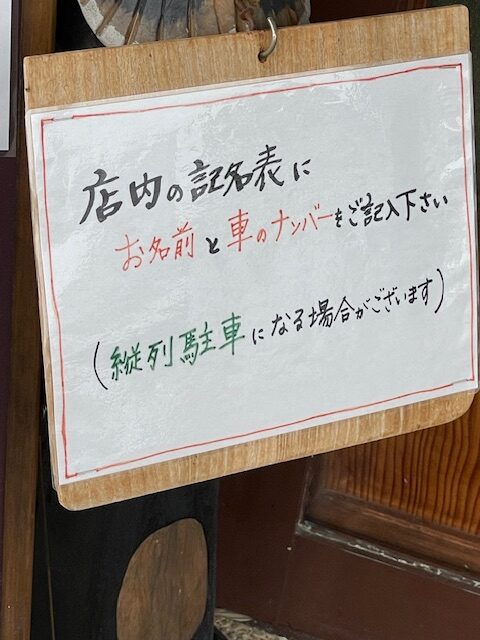 店内の記名表に
お名前と車のナンバーをご記入下さい
(縦列駐車になる場合がございます)